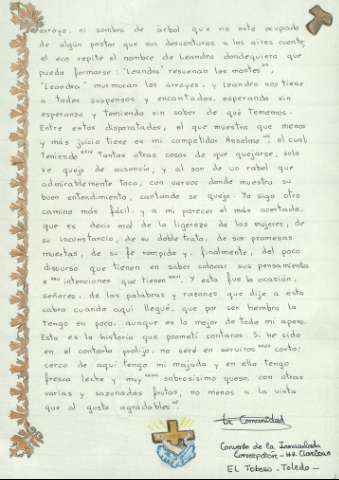 arroyo, ni sombra de árbol que no esté ocupada
de algún pastor que sus desventuras a los aires cuente;
el eco repite el nombre de Leandra dondequiera que
pueda formarse: "Leandra" resuenan los montes,
"Leandra" murmuran los arroyos, y Leandra nos tiene
a todos suspensos y encantados, esperando sin
esperanza y temiendo sin saber de qué tememos.
Entre estos disparatados, el que muestra que menos
y más juicio tiene es mi competidor Anselmo, el cual
teniendo tantas otras cosas de que quejarse, sólo
se queja de ausencia; y al son de un rabel que
admirablemente toca, con versos donde muestra su
buen entendimiento, cantando se queja. Yo sigo otro
camino más fácil, y a mi parecer el más acertado,
que es decir mal de la ligereza de las mujeres, de
su inconstancia, de su doble trato, de sus promesas
muertas, de su fe rompida y, finalmente, del poco
discurso que tienen en saber colocar sus pensamientos
e intenciones que tienen. Y esta fue la ocasión,
señores, de las palabras y razones que dije a esta
cabra cuando aquí llegué, que por ser hembra la
tengo en poco, aunque es la mejor de todo mi apero.
Esta es la historia que prometí contaros. Si he sido
en el contarla prolijo, no seré en serviros corto:
cerca de aquí tengo mi majada y en ella tengo
fresca leche y muy sabrosísimo queso, con otras
varias y sazonadas frutas, no menos a la vista
que al gusto agradables.
La Comunidad
Convento de la Inmaculada
Concepción - HH. Clarisas
EL Toboso - Toledo -